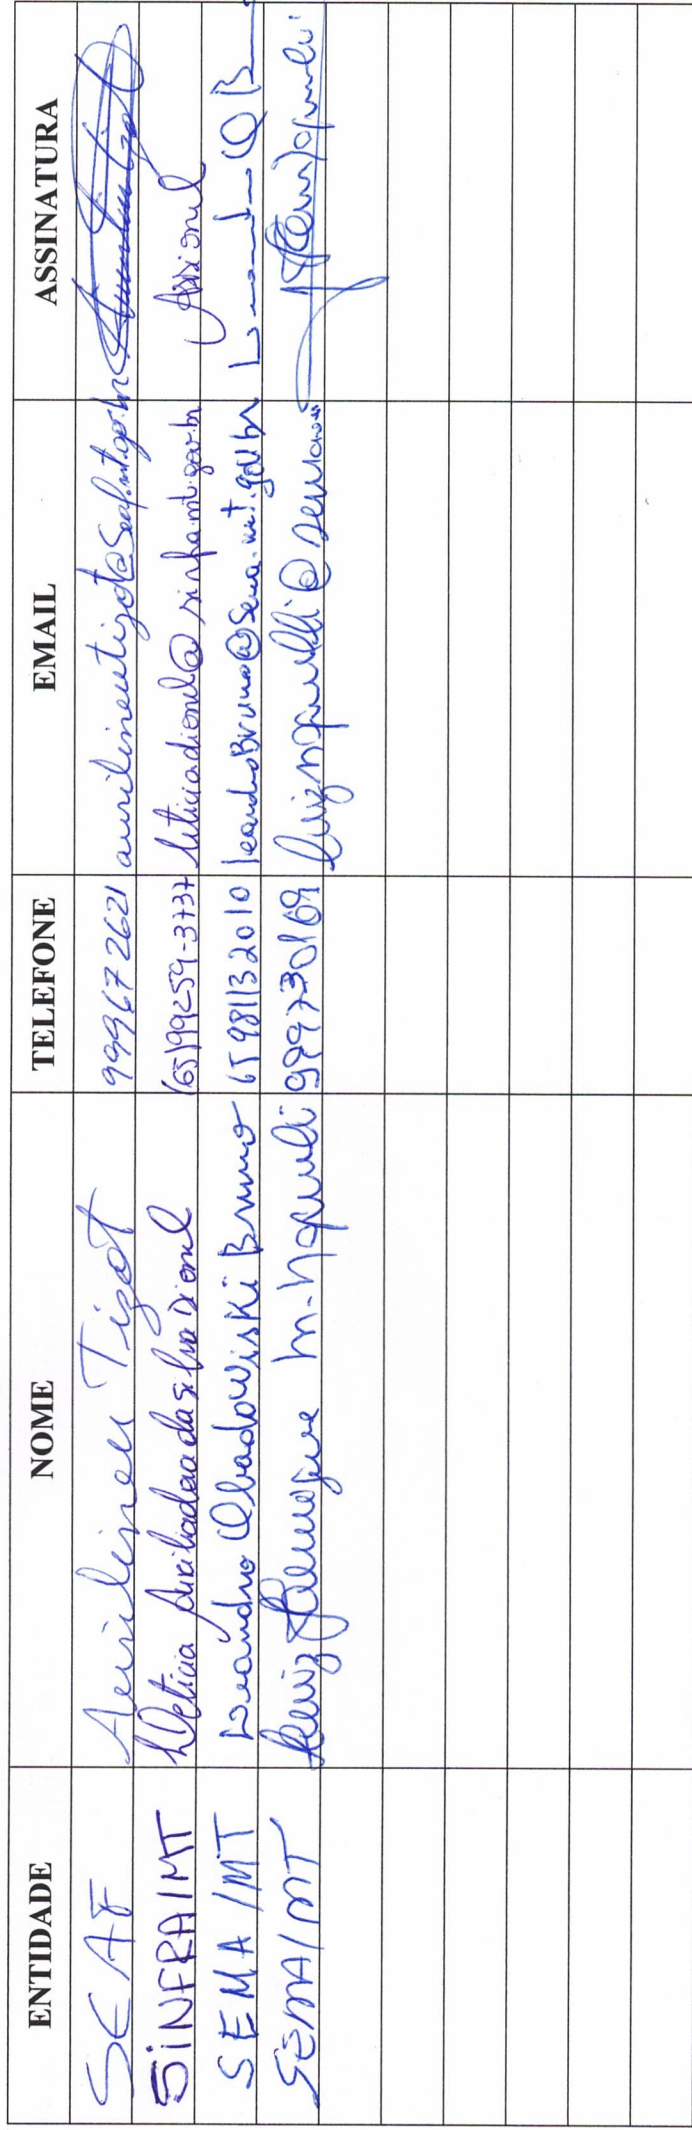 ENTIDADE NOME TELEFONE EMAIL ASSINATURA
SEAF Aurilineu Tizot 999672621 aurilineutizot@seaf.mt.gov.br
SINFRA/MT Letícia Auxiliadora da Silva Dionel (65)99259-3737 leticiadionel@sinfra.mt.gov.br Dionel
SEMA/MT Leandro Obadowiski Bruno 65 981132010 leandroBruno@sema.mt.gov.br Leandro O B
SEMA/MT Luiz M. 999730169